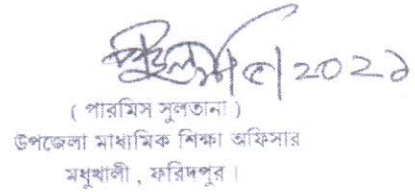 ২০২১
( পারমিস সুলতানা )
উপজেলা মাধ্যমিক শিক্ষা অফিসার
মধুখালী , ফরিদপুর ।